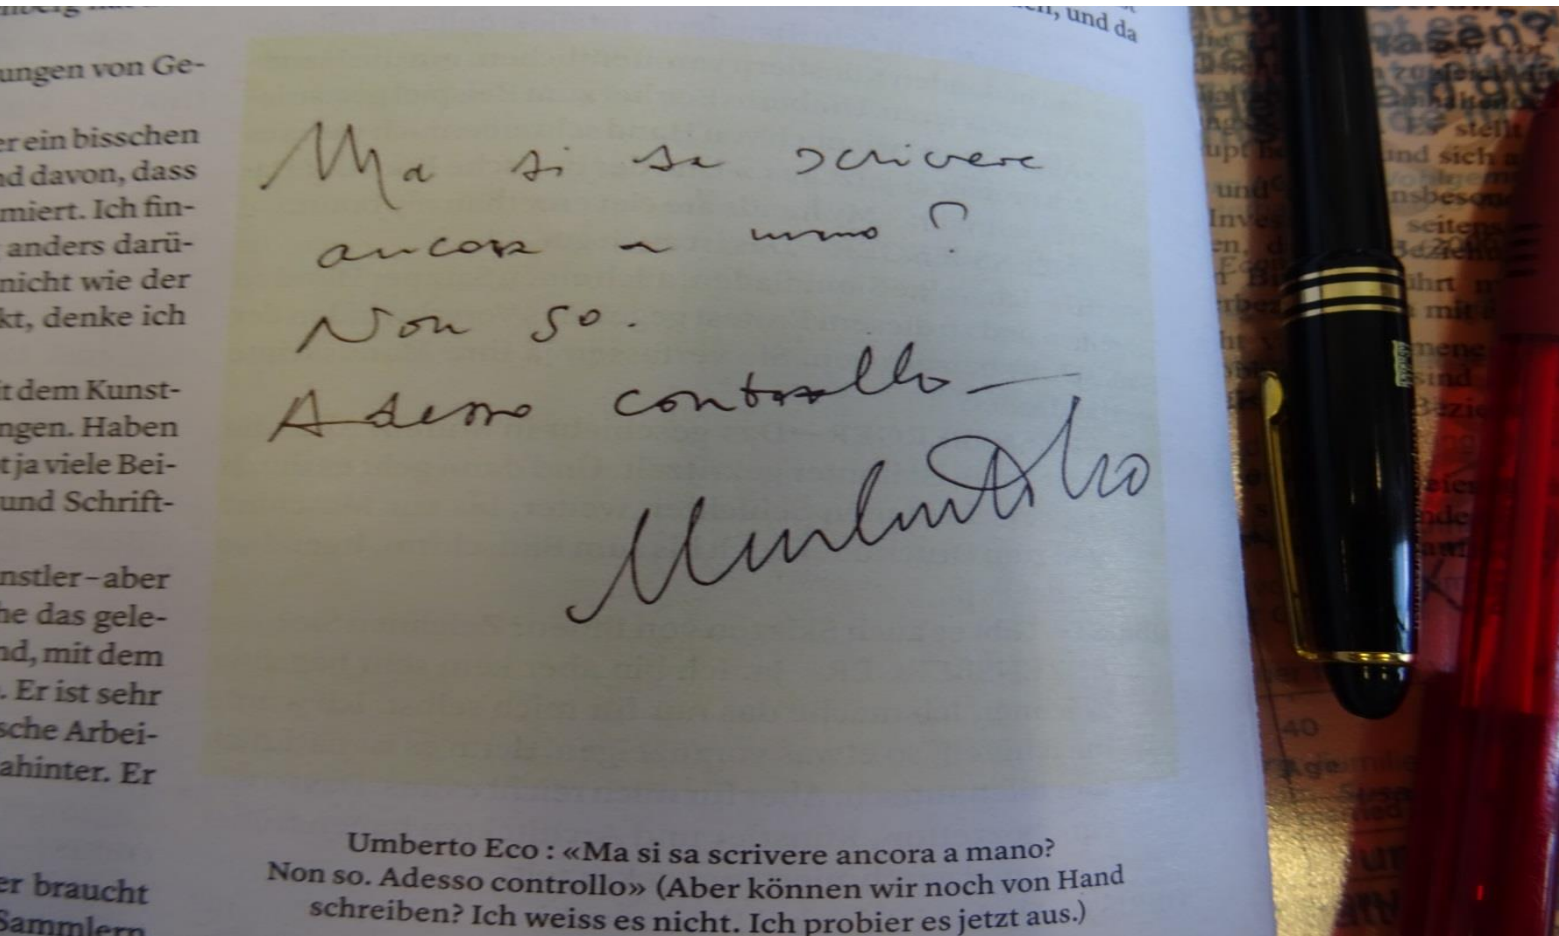 ungen von Ge-
er ein bisschen
nd davon, dass
miert. Ich fin-
anders darü-
nicht wie der
kt, denke ich
it dem Kunst-
ngen. Haben
t ja viele Bei-
und Schrift-
nstler – aber
he das gele-
nd, mit dem
. Er ist sehr
sche Arbei-
ahinter. Er
er braucht
Sammlern
und da
Ma si sa scrivere
ancora a mano?
Non so.
Adesso controllo
Umberto Eco
Umberto Eco : «Ma si sa scrivere ancora a mano?
Non so. Adesso controllo» (Aber können wir noch von Hand
schreiben? Ich weiss es nicht. Ich probier es jetzt aus.)
asen?
stellt
und sich
und
seitens
mit
sind
40
Age